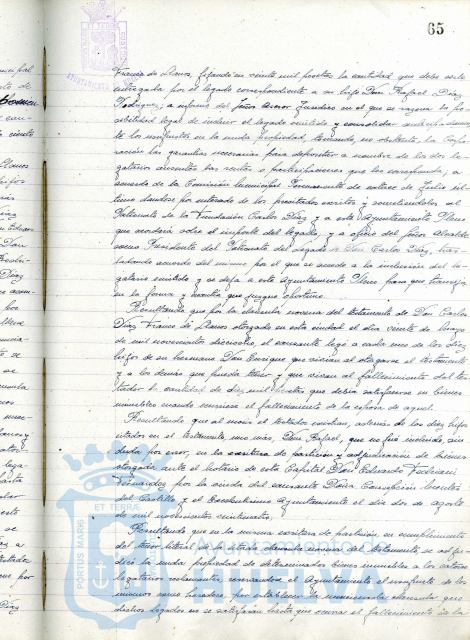 65
Franco de Llanos, fijando en veinte mil pesetas la cantidad que debe serle
entregada por el legado correspondiente a su hijo Don Rafael Díaz
Rodríguez; a informe del Señor Asesor Jurídico en el que se razona la
legal de incluir el legado omitido y consolidar
te los usufructos en la nuda propiedad, tomando, no obstante, la Corpo-
ración las garantías necesarias para depositar a nombre de los dos le-
gatarios ausentes las cuotas o participaciones que les corresponda; a
acuerdo de la Comisión Municipal Permanente de catorce de Julio úl-
timo dándose por enterado de los precitados escritos y sometiéndolos al
Patronato de la Fundación Carlos Díaz y a este Ayuntamiento Pleno
que acordará sobre el importe del legado, y a oficio del Señor Alcalde
como Presidente del Patronato del legado de Don Carlos Díaz, tras-
ladando acuerdo del mismo por el que se accede a la inclusión del le-
gatario omitido y se deja a este Ayuntamiento Pleno para que
en la forma y cuantía que juzgue oportuno.
Resultando que por la cláusula novena del testamento de Don Carlos
Díaz Franco de Llanos otorgado en esta ciudad el día veinte de Mayo
de mil novecientos dieciocho, el causante legó a cada uno de los diez
hijos de su hermano Don Enrique que vivían al otorgarse el testamento
y a los demás que pueda tener y que vivan al fallecimiento del tes-
tador la cantidad de diez mil pesetas que debía satisfacerse en bienes
inmuebles cuando ocurriese el fallecimiento de la esposa de aquel.
Resultando que al morir el testador existían, además de los diez hijos
citados en el testamento uno más, Don Rafael, que no fué incluido, sin
duda por error, en la escritura de partición y adjudicación de bienes
otorgada ante el Notario de esta Capital Don Eduardo
Fernández por la viuda del causante Doña Concepción
del Castillo y el Excelentísimo Ayuntamiento el día dos de agosto
de mil novecientos veinticuatro;
Resultando que en la misma escritura de partición, en cumplimiento
del tenor literal de la cláusula novena del testamento se adju-
dicó la nuda propiedad de determinados bienes inmuebles a los
legatarios reclamantes, reservándose el Ayuntamiento el usufructo de los
mismos como heredero, por establecer la mencionada cláusula que
dichos legados no se satisfarán hasta que ocurra el fallecimiento de la
ET TERRAE
PORTUS MARIS
Ayuntamiento